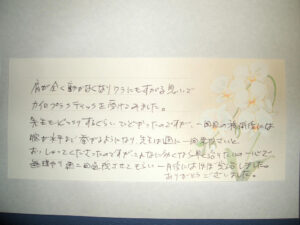 肩が全く動かなくなりワラにもすがる思いで
カイロプラクティックを受けてみました。
先生もびっくりするぐらいひどかったのですが、一回目の施術後には
腕が水平まで上がるようになり、先生は週に一回来院と
おっしゃってくださったのですが、こんなに 早く 一心で
無理やり週二回 させてもらい 一月後にはほぼ 完治しました。
ありがとうございました。